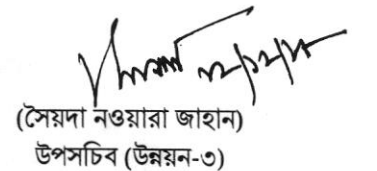 (সৈয়দা নওয়ারা জাহান)
উপসচিব (উন্নয়ন-৩)